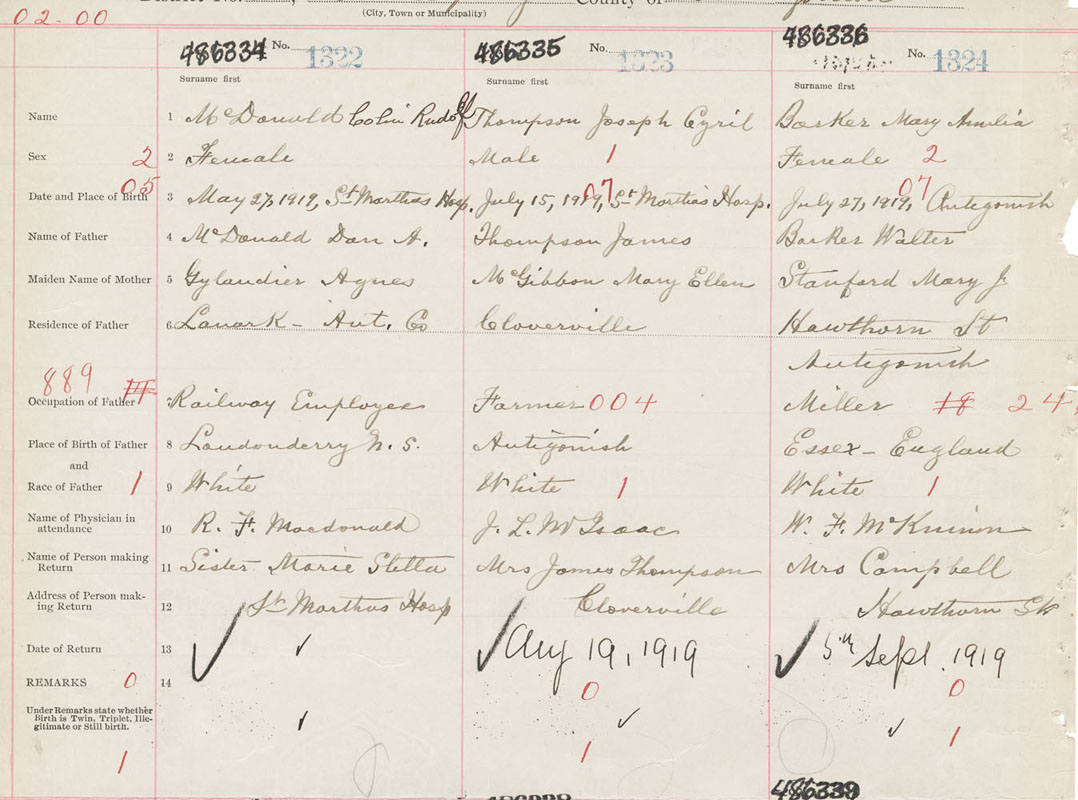 County of
(City, Town or Municipality)
02-00
486334 No. 1322
486335 No. 1323
486336 No. 1324
Surname first
Surname first
Surname first
Name 1 McDonald Colin Rudolf
Thompson Joseph Cyril
Barker Mary Amilia
Sex 2 2 Female
Male 1
Female 2
Date and Place of Birth 05 3 May 27, 1919, St Marthas Hosp.
July 15, 1919, 07 St Marthas Hosp.
July 27, 1919, 07 Antigonish
Name of Father 4 McDonald Dan A.
Thompson James
Barker Walter
Maiden Name of Mother 5 Gylandier Agnes
McGibbon Mary Ellen
Stanford Mary J
Residence of Father 6 Lanark - Ant. Co
Cloverville
Hawthorn St
Antigonish
889
Occupation of Father 7 Railway Employee
Farmer 004
Miller 18 24
Place of Birth of Father 8 Londonderry N. S.
Antigonish
Essex - England
and
Race of Father 1 9 White
White 1
White 1
Name of Physician in
attendance 10 R. F. Macdonald
J. L. McIsaac
W. F. McKinnon
Name of Person making
Return 11 Sister Marie Stella
Mrs James Thompson
Mrs Campbell
Address of Person mak-
ing Return 12 St Marthas Hosp
Cloverville
Hawthorn St
Date of Return 13
Aug 19, 1919
5th Sept. 1919
REMARKS 0 14
0
0
Under Remarks state whether
Birth is Twin, Triplet, Ille-
gitimate or Still birth.
1
1
1
486339